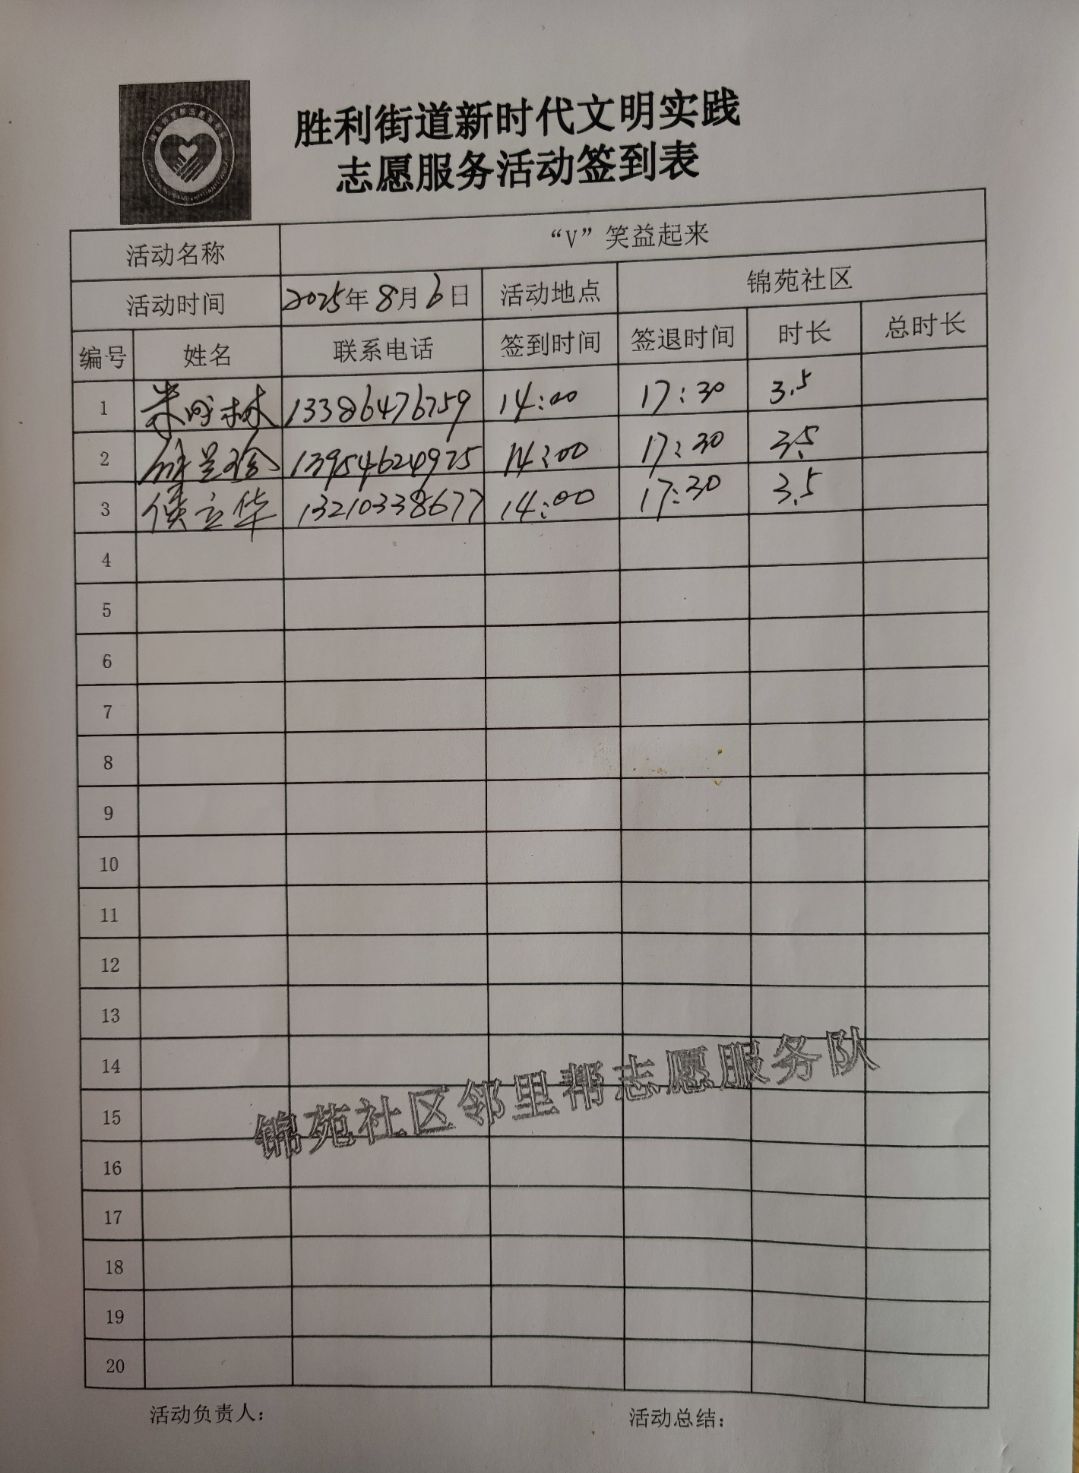 胜利街道新时代文明实践
志愿服务活动签到表
活动名称 “V”笑益起来
活动时间 2025年8月6日 活动地点 锦苑社区
编号 姓名 联系电话 签到时间 签退时间 时长 总时长
1 13386476759 14:00 17:30 3.5
2 13954624975 14:00 17:30 3.5
3 侯立华 13210338677 14:00 17:30 3.5
4
5
6
7
8
9
10
11
12
13
14
15
16
17
18
19
20
锦苑社区邻里帮志愿服务队
活动负责人： 活动总结：